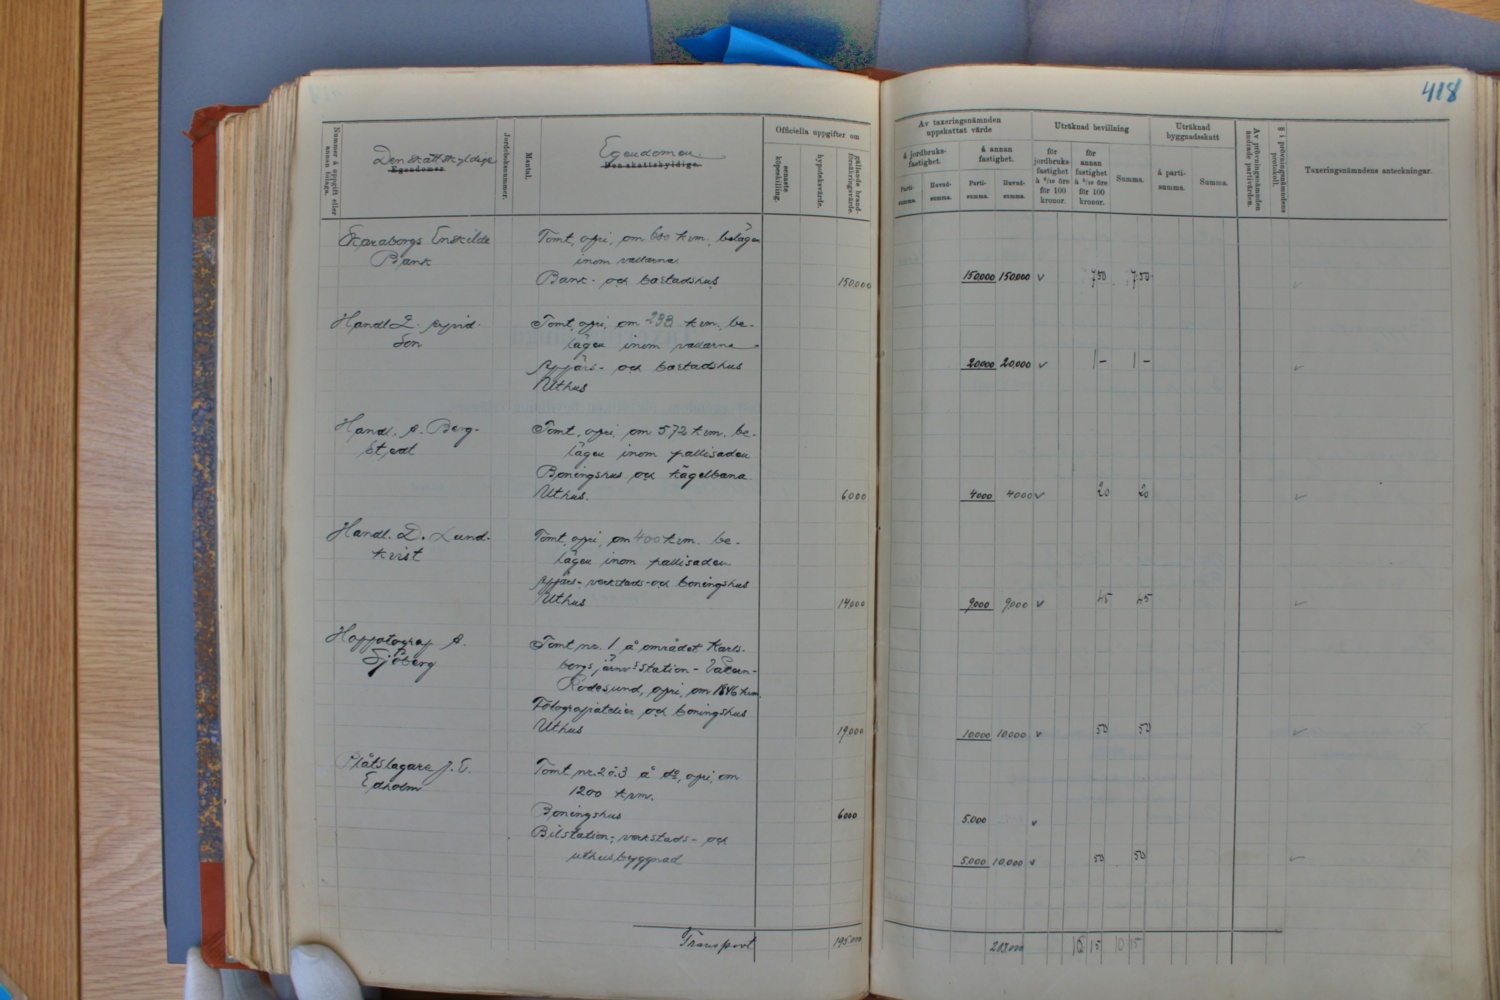 418
Nummer å uppgift eller annan bilaga.
Den skattskyldige
Egendomen
Jordeboksnummer.
Mantal.
Egendomen.
Den skattskyldige.
Officiella uppgifter om
senaste köpeskilling.
hypoteksvärde.
gällande brandförsäkringsvärde.
Av taxeringsnämnden uppskattat värde
å jordbruksfastighet.
å annan fastighet.
Partisumma.
Huvudsumma.
Partisumma.
Huvudsumma.
Uträknad bevillning
för jordbruksfastighet å 6/10 öre för 100 kronor.
för annan fastighet å 5/10 öre för 100 kronor.
Summa.
Uträknad byggnadsskatt
å partisumma.
Summa.
Av prövningsnämnden ändrade partivärden.
§ i prövningsnämndens protokoll.
Taxeringsnämndens anteckningar.
Skaraborgs Enskilda Tomt, opri, om 600 kvm, belägen
Bank inom vallarna
Bank- och bostadshus 150,000 150,000 150,000 v 7 50 7 50
Handl. Tomt, opri, om 238 kvm, be-
son lägen inom vallarne
Affärs- och bostadshus 20,000 20,000 v 1 - 1 -
Uthus
Handl. A. Berg- Tomt, opri, om 572 kvm, be-
stedt lägen inom pallisaden
Boningshus och kägelbana
Uthus. 6000 4000 4000 v 20 20
Handl. D. Lund- Tomt, opri, om 400 kvm. be-
kvist lägen inom pallisaden
Affärs- verkstads- och boningshus
Uthus 14000 9000 9000 v 45 45
A. Tomt nr. 1 å området Karls-
Sjöberg borgs järnv:sstation - Vätern-
Rödesund, opri, om 1846 kvm.
Fotografiatelier och boningshus
Uthus 19,000 10000 10000 v 50 50
Plåtslagare J. E. Tomt nr. 2 o. 3 å do, opri, om
Edholm 1200 kvm.
Boningshus 6000 5.000 v
Bilstation-, verkstads- och
uthusbyggnad 5.000 10,000 v 50 50
Transport 195000 203000 10 15 10 15